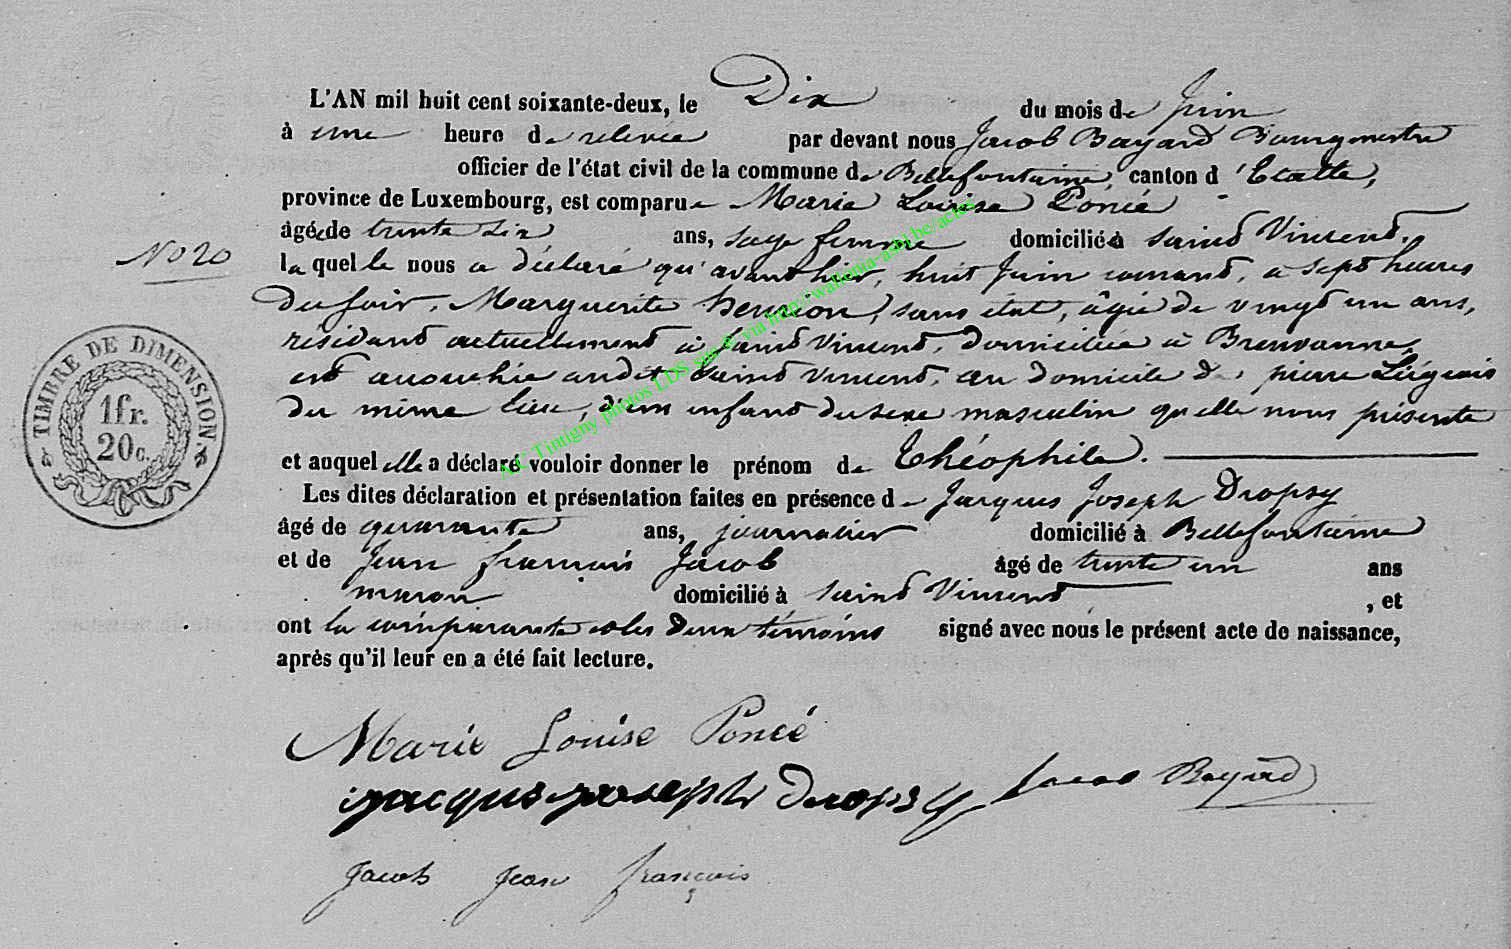 L'AN mil huit cent soixante-deux, le Dix du mois de Juin
à une heure de relevée par devant nous Jacob Bayard Bourgmestre
officier de l'état civil de la commune de Bellefontaine, canton d'Etalle,
province de Luxembourg, est comparue Marie Louise Poncé
âgée de trente six ans, sage femme domiciliée à Saint Vincent,
N° 20
laquelle nous a déclaré qu'avant hier, huit Juin courant, à sept heures
du soir, Marguerite Henrion, sans état, âgée de vingt un ans,
résidant actuellement à Saint Vincent, domiciliée à Breuvanne,
est accouchée audit Saint Vincent, au domicile de pierre Liégeois
du même lieu, d'un enfant du sexe masculin qu'elle nous présente
et auquel elle a déclaré vouloir donner le prénom de Théophile.
Les dites déclaration et présentation faites en présence de Jacques Joseph Dropsy
âgé de quarante ans, journalier domicilié à Bellefontaine
et de Jean françois Jacob âgé de trente un ans
maçon domicilié à Saint Vincent, et
ont la comparante et les deux témoins signé avec nous le présent acte de naissance,
après qu'il leur en a été fait lecture.
TIMBRE DE DIMENSION.
1fr.
20c.
AC Tintigny photos LDS via http://wallonia-asbl.be/actes
Marie Louise Poncé
jacques joseph dropsy Jacob Bayard
Jacob Jean françois